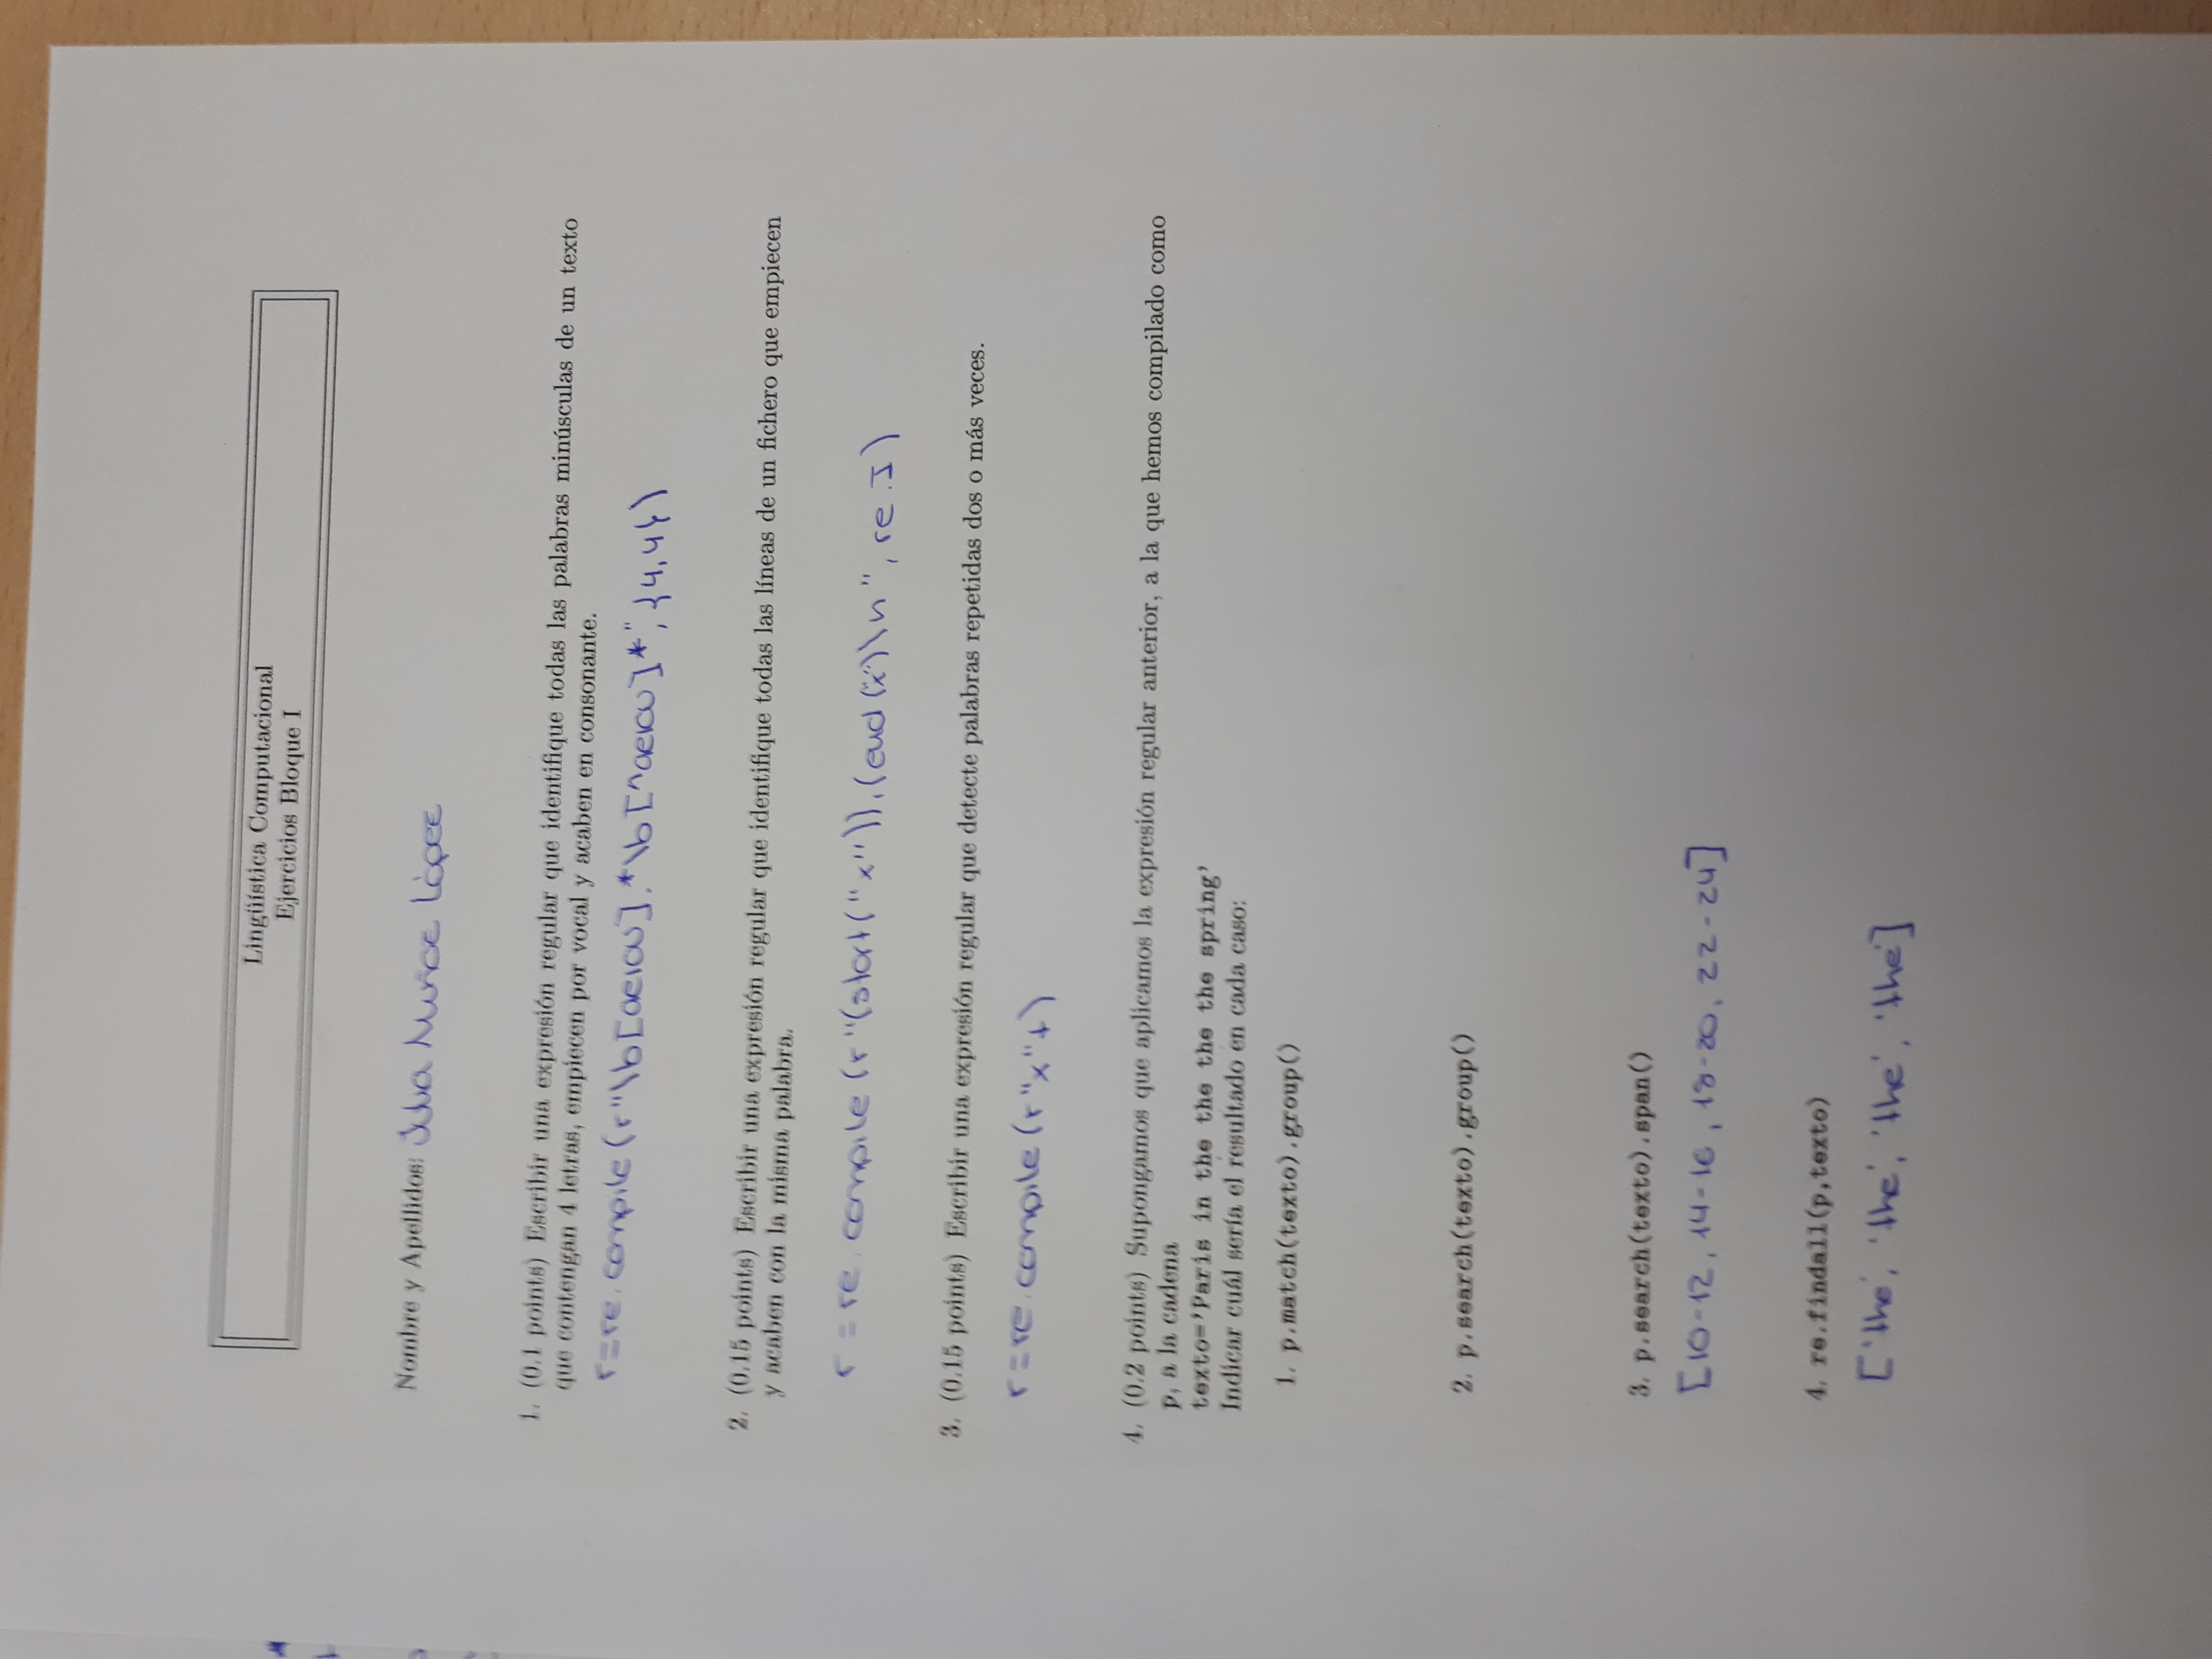 Lingüística Computacional
Ejercicios Bloque I
Nombre y Apellidos: Julia Muñoz López
1. (0.1 points) Escribir una expresión regular que identifique todas las palabras minúsculas de un texto
que contengan 4 letras, empiecen por vocal y acaben en consonante.
r=re.compile(r"\b[aeiou].*\b[^aeiou]*",{4,4})
2. (0.15 points) Escribir una expresión regular que identifique todas las líneas de un fichero que empiecen
y acaben con la misma palabra.
r = re.compile(r"(start("x")).(end("x")\n", re.I)
3. (0.15 points) Escribir una expresión regular que detecte palabras repetidas dos o más veces.
r=re.compile(r"x"+)
4. (0.2 points) Supongamos que aplicamos la expresión regular anterior, a la que hemos compilado como
p, a la cadena
texto='Paris in the the the the spring'
Indicar cuál sería el resultado en cada caso:
1. p.match(texto).group()
2. p.search(texto).group()
3. p.search(texto).span()
[10-12, 14-16, 18-20, 22-24]
4. re.findall(p,texto)
['the', 'the', 'the', 'the']